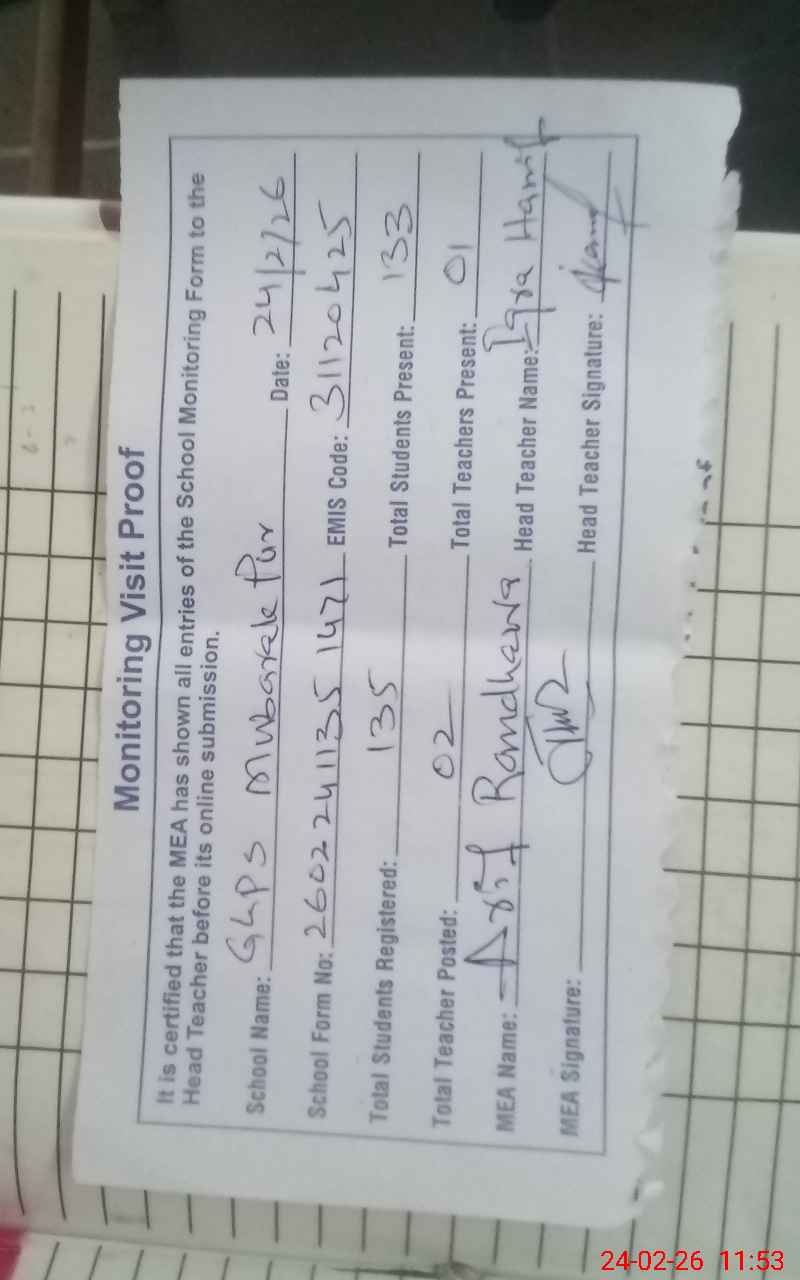 Monitoring Visit Proof
It is certified that the MEA has shown all entries of the School Monitoring Form to the
Head Teacher before its online submission.
School Name: GHPS Mubarak Pur Date: 24/2/26
School Form No: 26022411351471 EMIS Code: 31120425
Total Students Registered: 135 Total Students Present: 133
Total Teacher Posted: 02 Total Teachers Present: 01
MEA Name: Asif Randhawa Head Teacher Name: Iqra Hanif
MEA Signature: Head Teacher Signature:
24-02-26 11:53